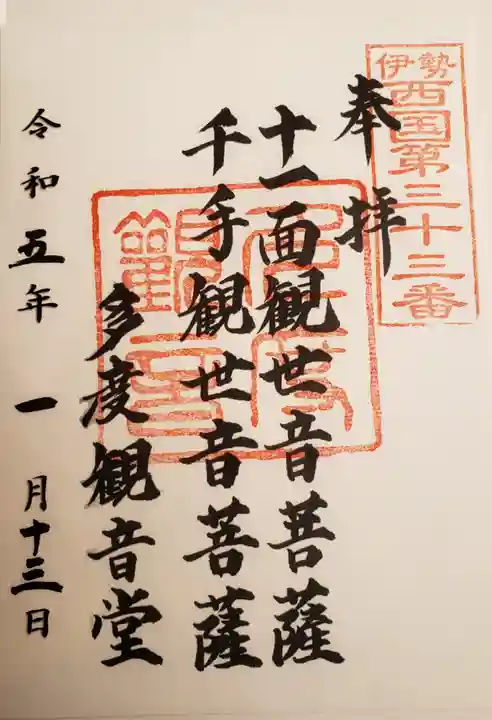 伊勢
西国第三十三番
奉拝
十一面観世音菩薩
千手観世音菩薩
多度観音堂
令和五年一月十三日